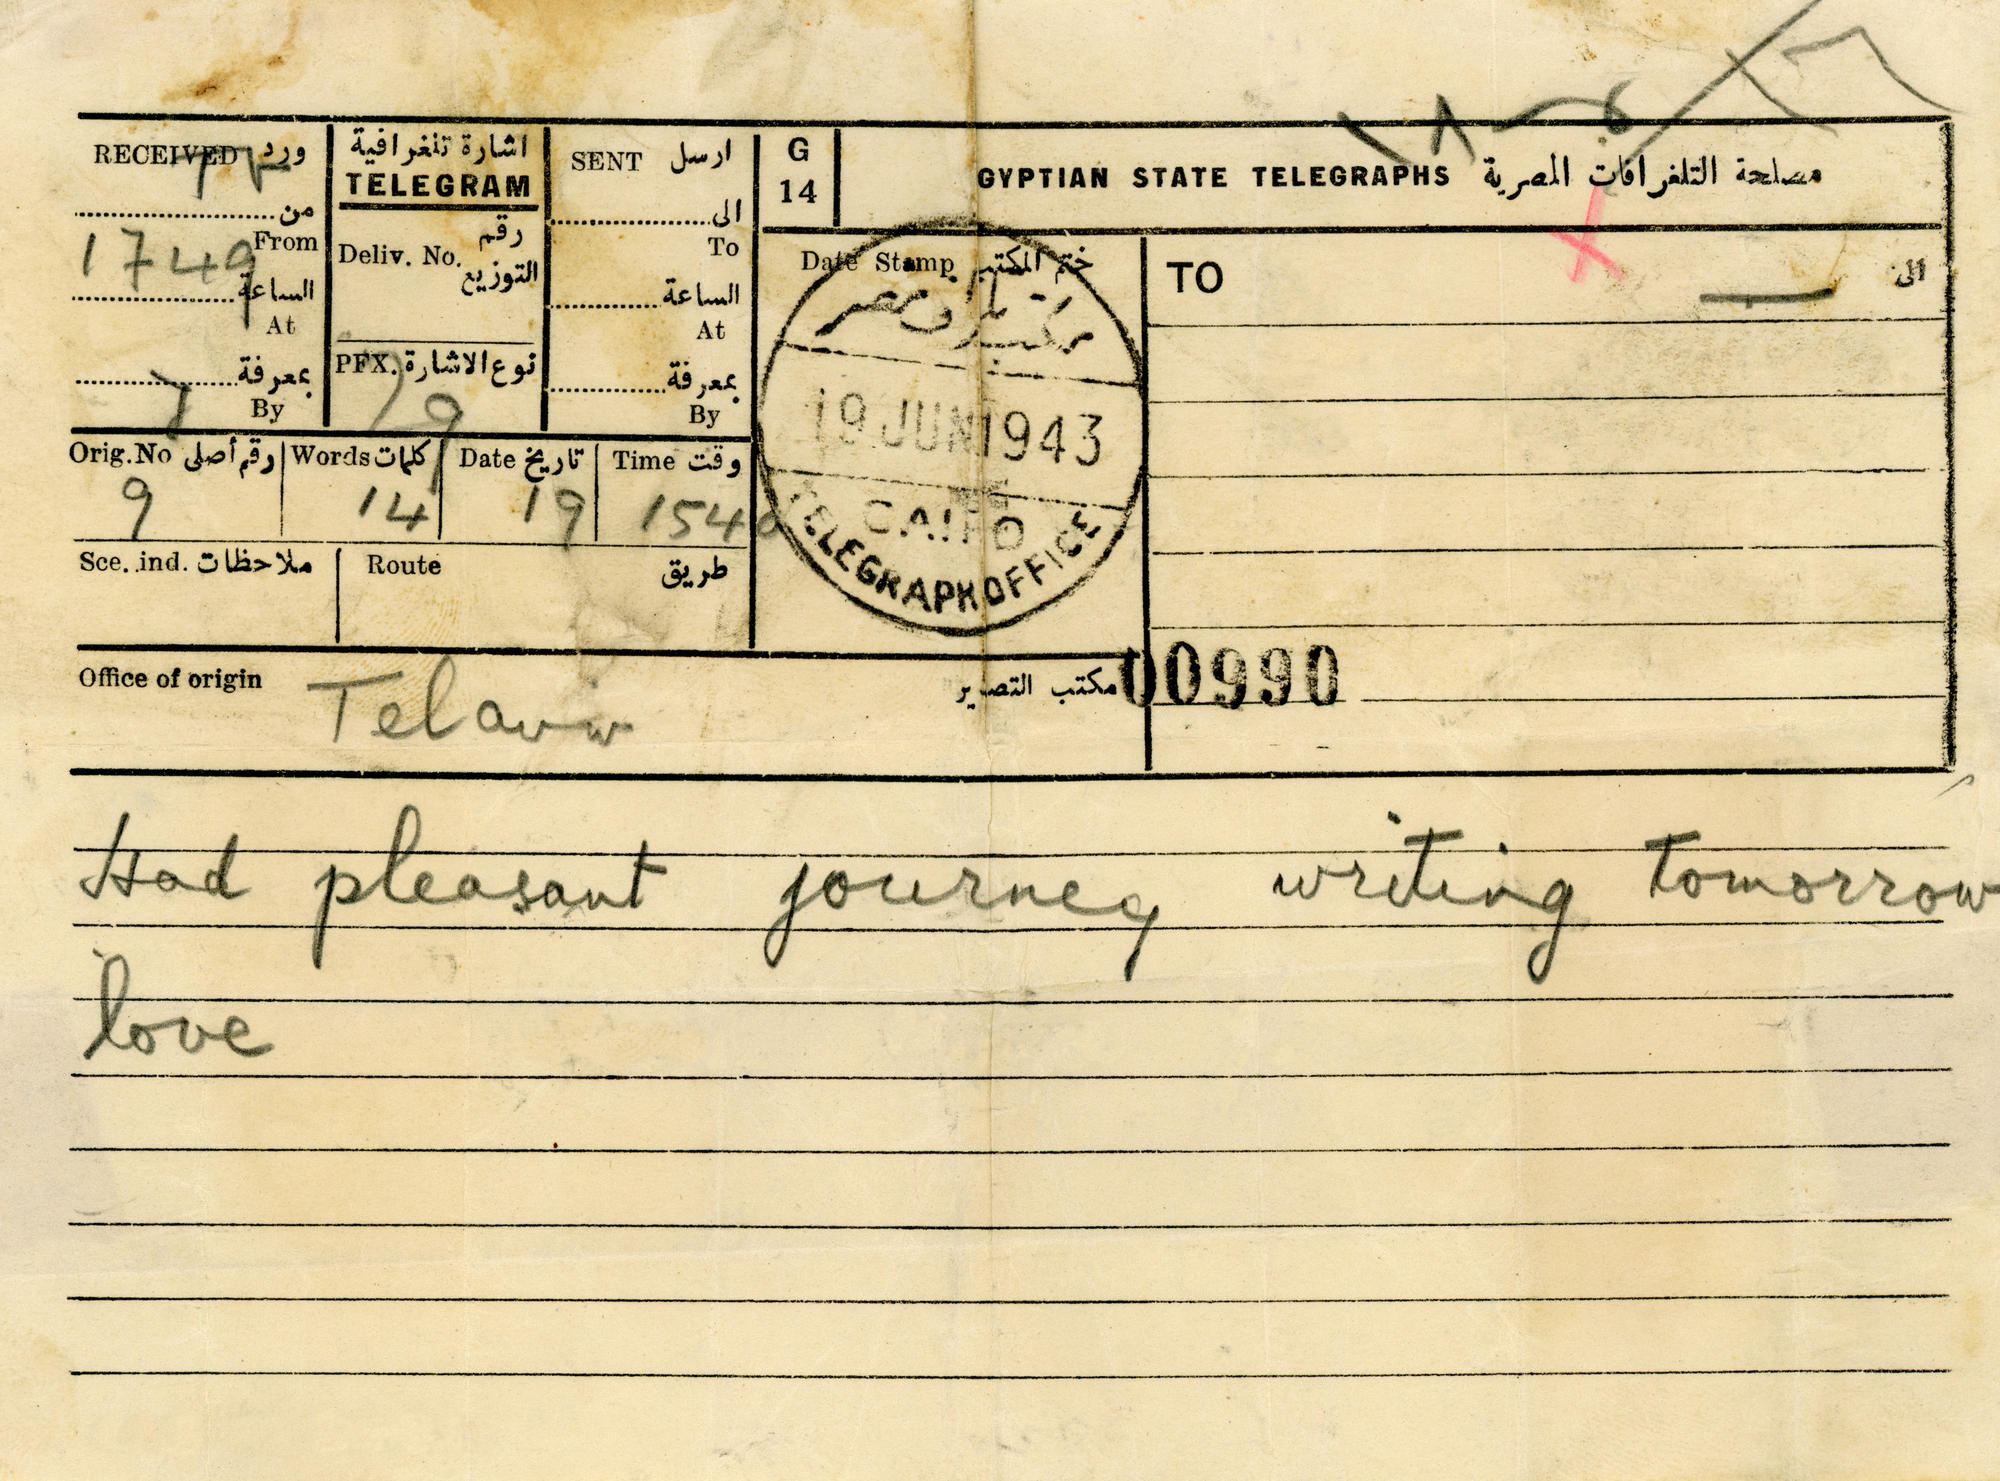 RECEIVED ورد
من
From
1749
الساعة
At
بمعرفة
By
اشارة تلغرافية
TELEGRAM
رقم
Deliv. No.
التوزيع
PFX. نوع الاشارة
19
SENT ارسل
الى
To
الساعة
At
بمعرفة
By
G
14
GYPTIAN STATE TELEGRAPHS مصلحة التلغرافات المصرية
Date Stamp ختم المكتب
19 JUN 1943
CAIRO
TELEGRAPH OFFICE
TO الى
Orig.No رقم أصلى Words كلمات Date تاريخ Time وقت
9 14 19 1540
Sce. ind. ملاحظات Route طريق
Office of origin Telaviv مكتب التصدير
00990
Had pleasant journey writing tomorrow
love